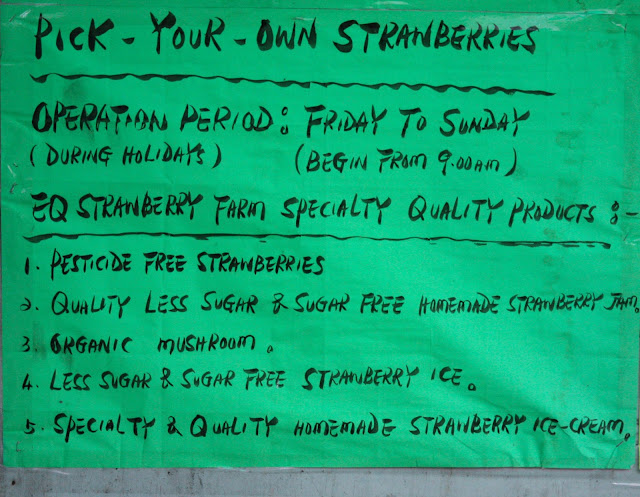 PICK - YOUR - OWN STRAWBERRIES
OPERATION PERIOD: FRIDAY TO SUNDAY
(DURING HOLIDAYS) (BEGIN FROM 9.00AM)
EQ STRAWBERRY FARM SPECIALTY QUALITY PRODUCTS :-
1. PESTICIDE FREE STRAWBERRIES
2. QUALITY LESS SUGAR & SUGAR FREE HOMEMADE STRAWBERRY JAM.
3. ORGANIC MUSHROOM.
4. LESS SUGAR & SUGAR FREE STRAWBERRY ICE.
5. SPECIALTY & QUALITY HOMEMADE STRAWBERRY ICE-CREAM.